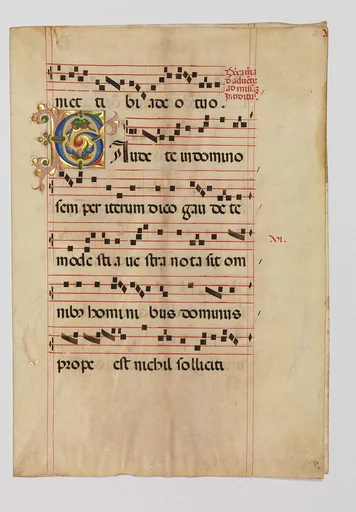 niet ti bi ade o tuo.
Gaude te in domino
sem per iterum dico gau de te
mode sti a ue stra nota sit om
nibꝫ homi ni bus dominus
prope est nichil solliciti
VI.